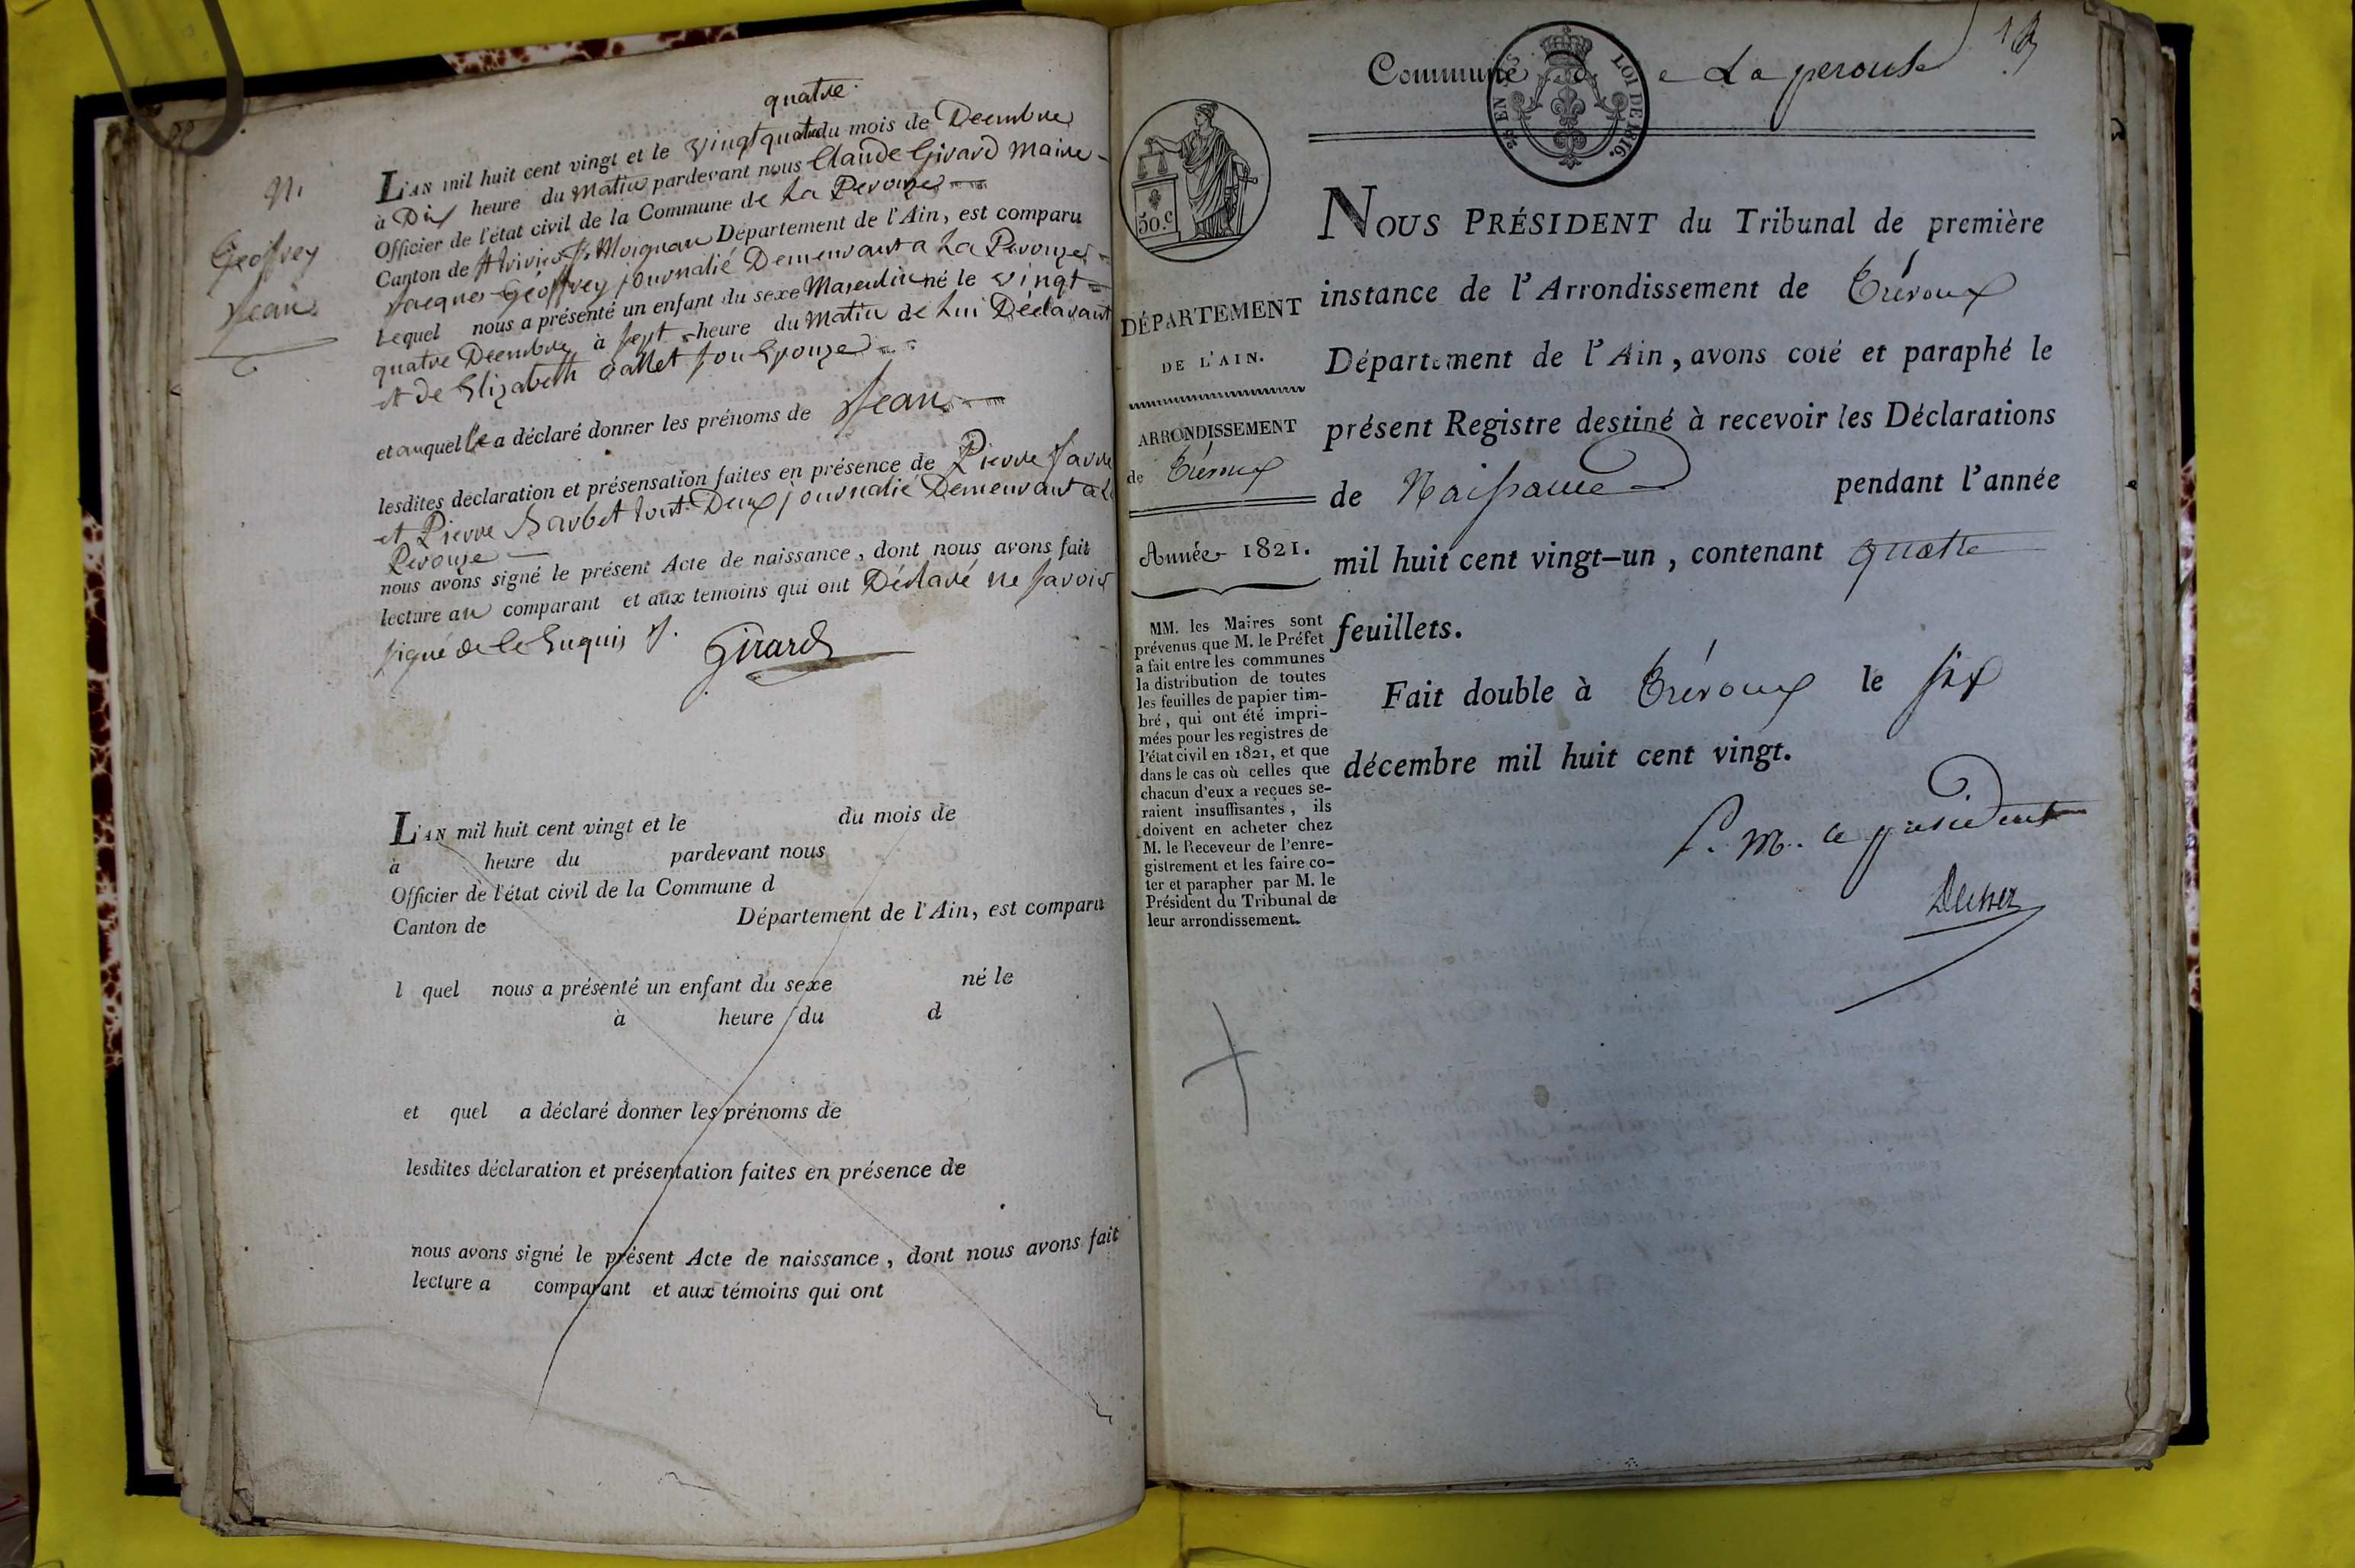 quatre
L'AN mil huit cent vingt et le vingt quatre du mois de Decembre
à Dix heure du Matin pardevant nous Claude Girard Maire
Officier de l'état civil de la Commune de La Perouze
Canton de St Moignan Département de l'Ain, est comparu
Jacques Geoffrey journalié Demeurant a La Perouze
Lequel nous a présenté un enfant du sexe Masculin né le vingt
quatre Decembre à sept heure du Matin de Lui Déclarant
et de Elizabeth Gallet son Epouze
et auquel il a déclaré donner les prénoms de Jean
lesdites déclaration et présensation faites en présence de Pierre Favre
et Pierre Barbet tout Deux journalié Demeurant a La
Perouze
nous avons signé le présent Acte de naissance, dont nous avons fait
lecture au comparant et aux temoins qui ont Déclaré ne savoir
signé de ce Enquis
Girard
N.
Geoffrey
Jean
L'AN mil huit cent vingt et le du mois de
à heure du pardevant nous
Officier de l'état civil de la Commune d
Canton de Département de l'Ain, est comparu
l quel nous a présenté un enfant du sexe né le
à heure du d
et quel a déclaré donner les prénoms de
lesdites déclaration et présentation faites en présence de
nous avons signé le présent Acte de naissance, dont nous avons fait
lecture a comparant et aux témoins qui ont
Commune de La perouse
EN SUS
LOI DE 1816.
50.c
DÉPARTEMENT
DE L'AIN.
ARRONDISSEMENT
de Trévoux
Année 1821.
MM. les Maires sont
prévenus que M. le Préfet
a fait entre les communes
la distribution de toutes
les feuilles de papier tim-
bré, qui ont été impri-
mées pour les registres de
l'état civil en 1821, et que
dans le cas où celles que
chacun d'eux a reçues se-
raient insuffisantes, ils
doivent en acheter chez
M. le Receveur de l'enre-
gistrement et les faire co-
ter et parapher par M. le
Président du Tribunal de
leur arrondissement.
NOUS PRÉSIDENT du Tribunal de première
instance de l'Arrondissement de Trévoux
Département de l'Ain, avons coté et paraphé le
présent Registre destiné à recevoir les Déclarations
de Naissance pendant l'année
mil huit cent vingt-un, contenant quatre
feuillets.
Fait double à Trévoux le six
décembre mil huit cent vingt.
P. M. le président